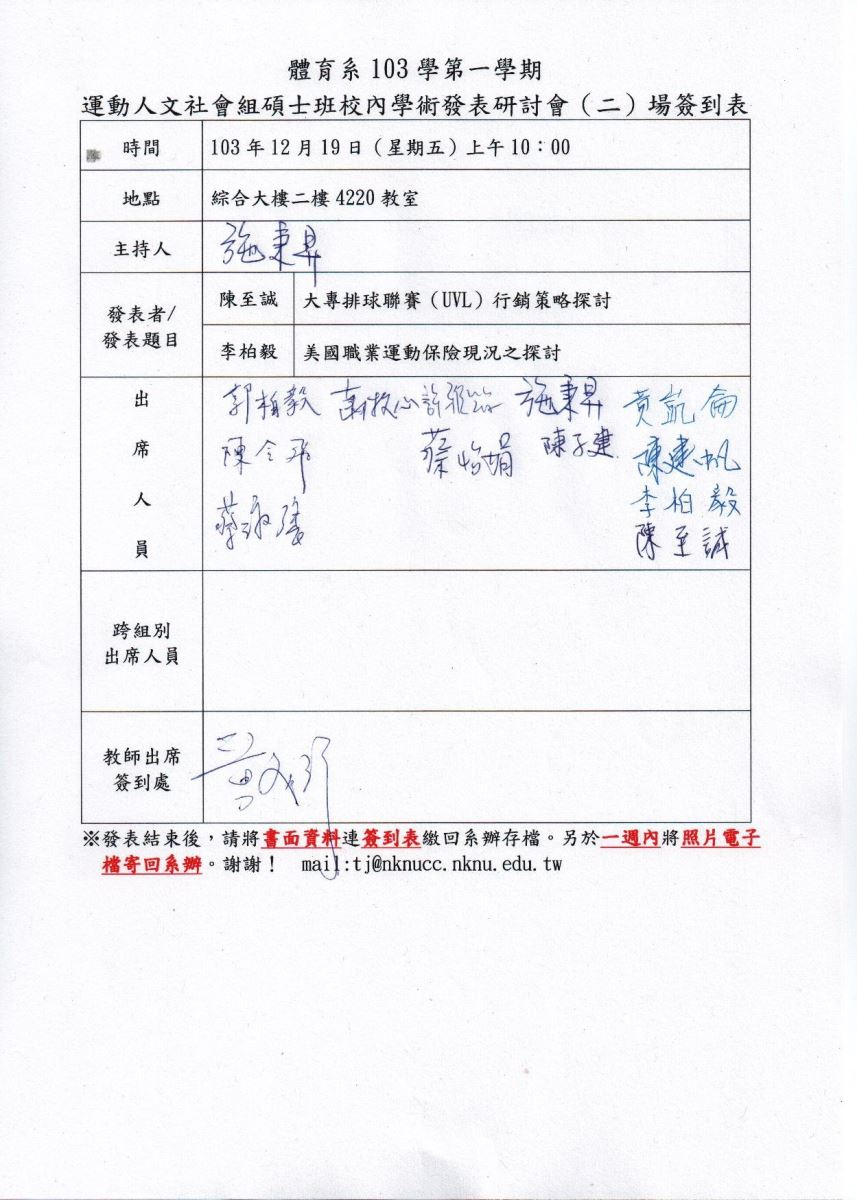 體育系 103 學第一學期
運動人文社會組碩士班校內學術發表研討會（二）場簽到表
時間 103 年 12 月 19 日（星期五）上午 10：00
地點 綜合大樓二樓 4220 教室
主持人 施秉昇
發表者/
發表題目
陳至誠 大專排球聯賽（UVL）行銷策略探討
李柏毅 美國職業運動保險現況之探討
出席人員
郭柏毅 施秉昇 黃凱侖
陳令平 蔡怡娟 陳子建 陳建帆
李柏毅
陳至誠
跨組別
出席人員
教師出席
簽到處
※發表結束後，請將書面資料連簽到表繳回系辦存檔。另於一週內將照片電子
檔寄回系辦。謝謝！ mail:tj@nknucc.nknu.edu.tw